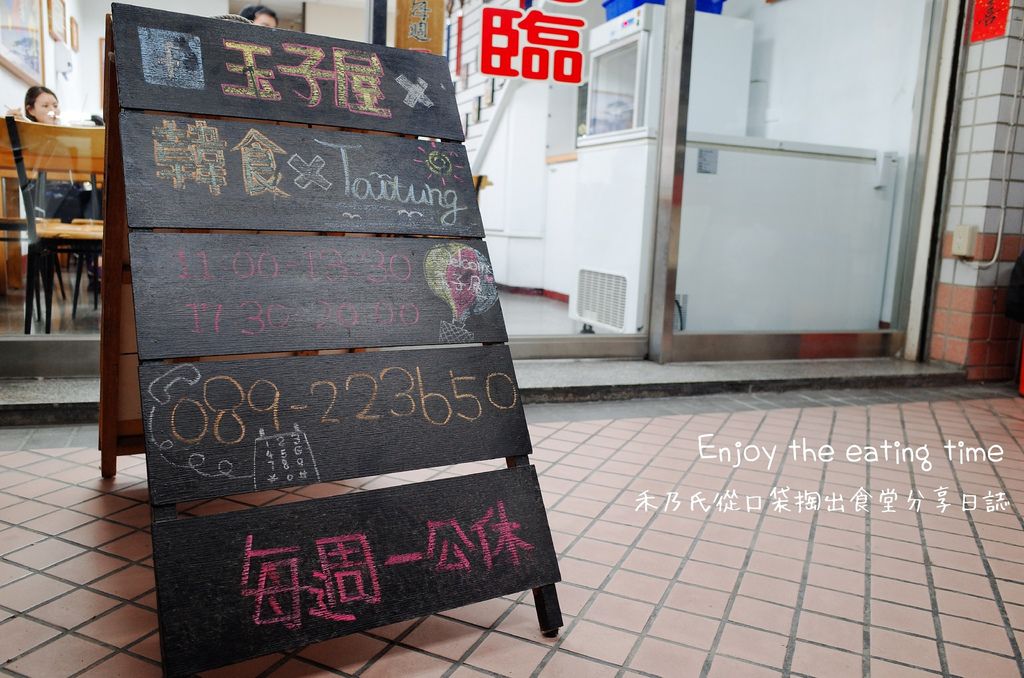 玉子屋
韓食×Taitung
11:00-13:30
17:30-20:00
089-223650
1 2 3
4 5 6
7 8 9
* 0 #
每週一公休
每週
臨
Enjoy the eating time
禾乃氏從口袋掏出食堂分享日誌